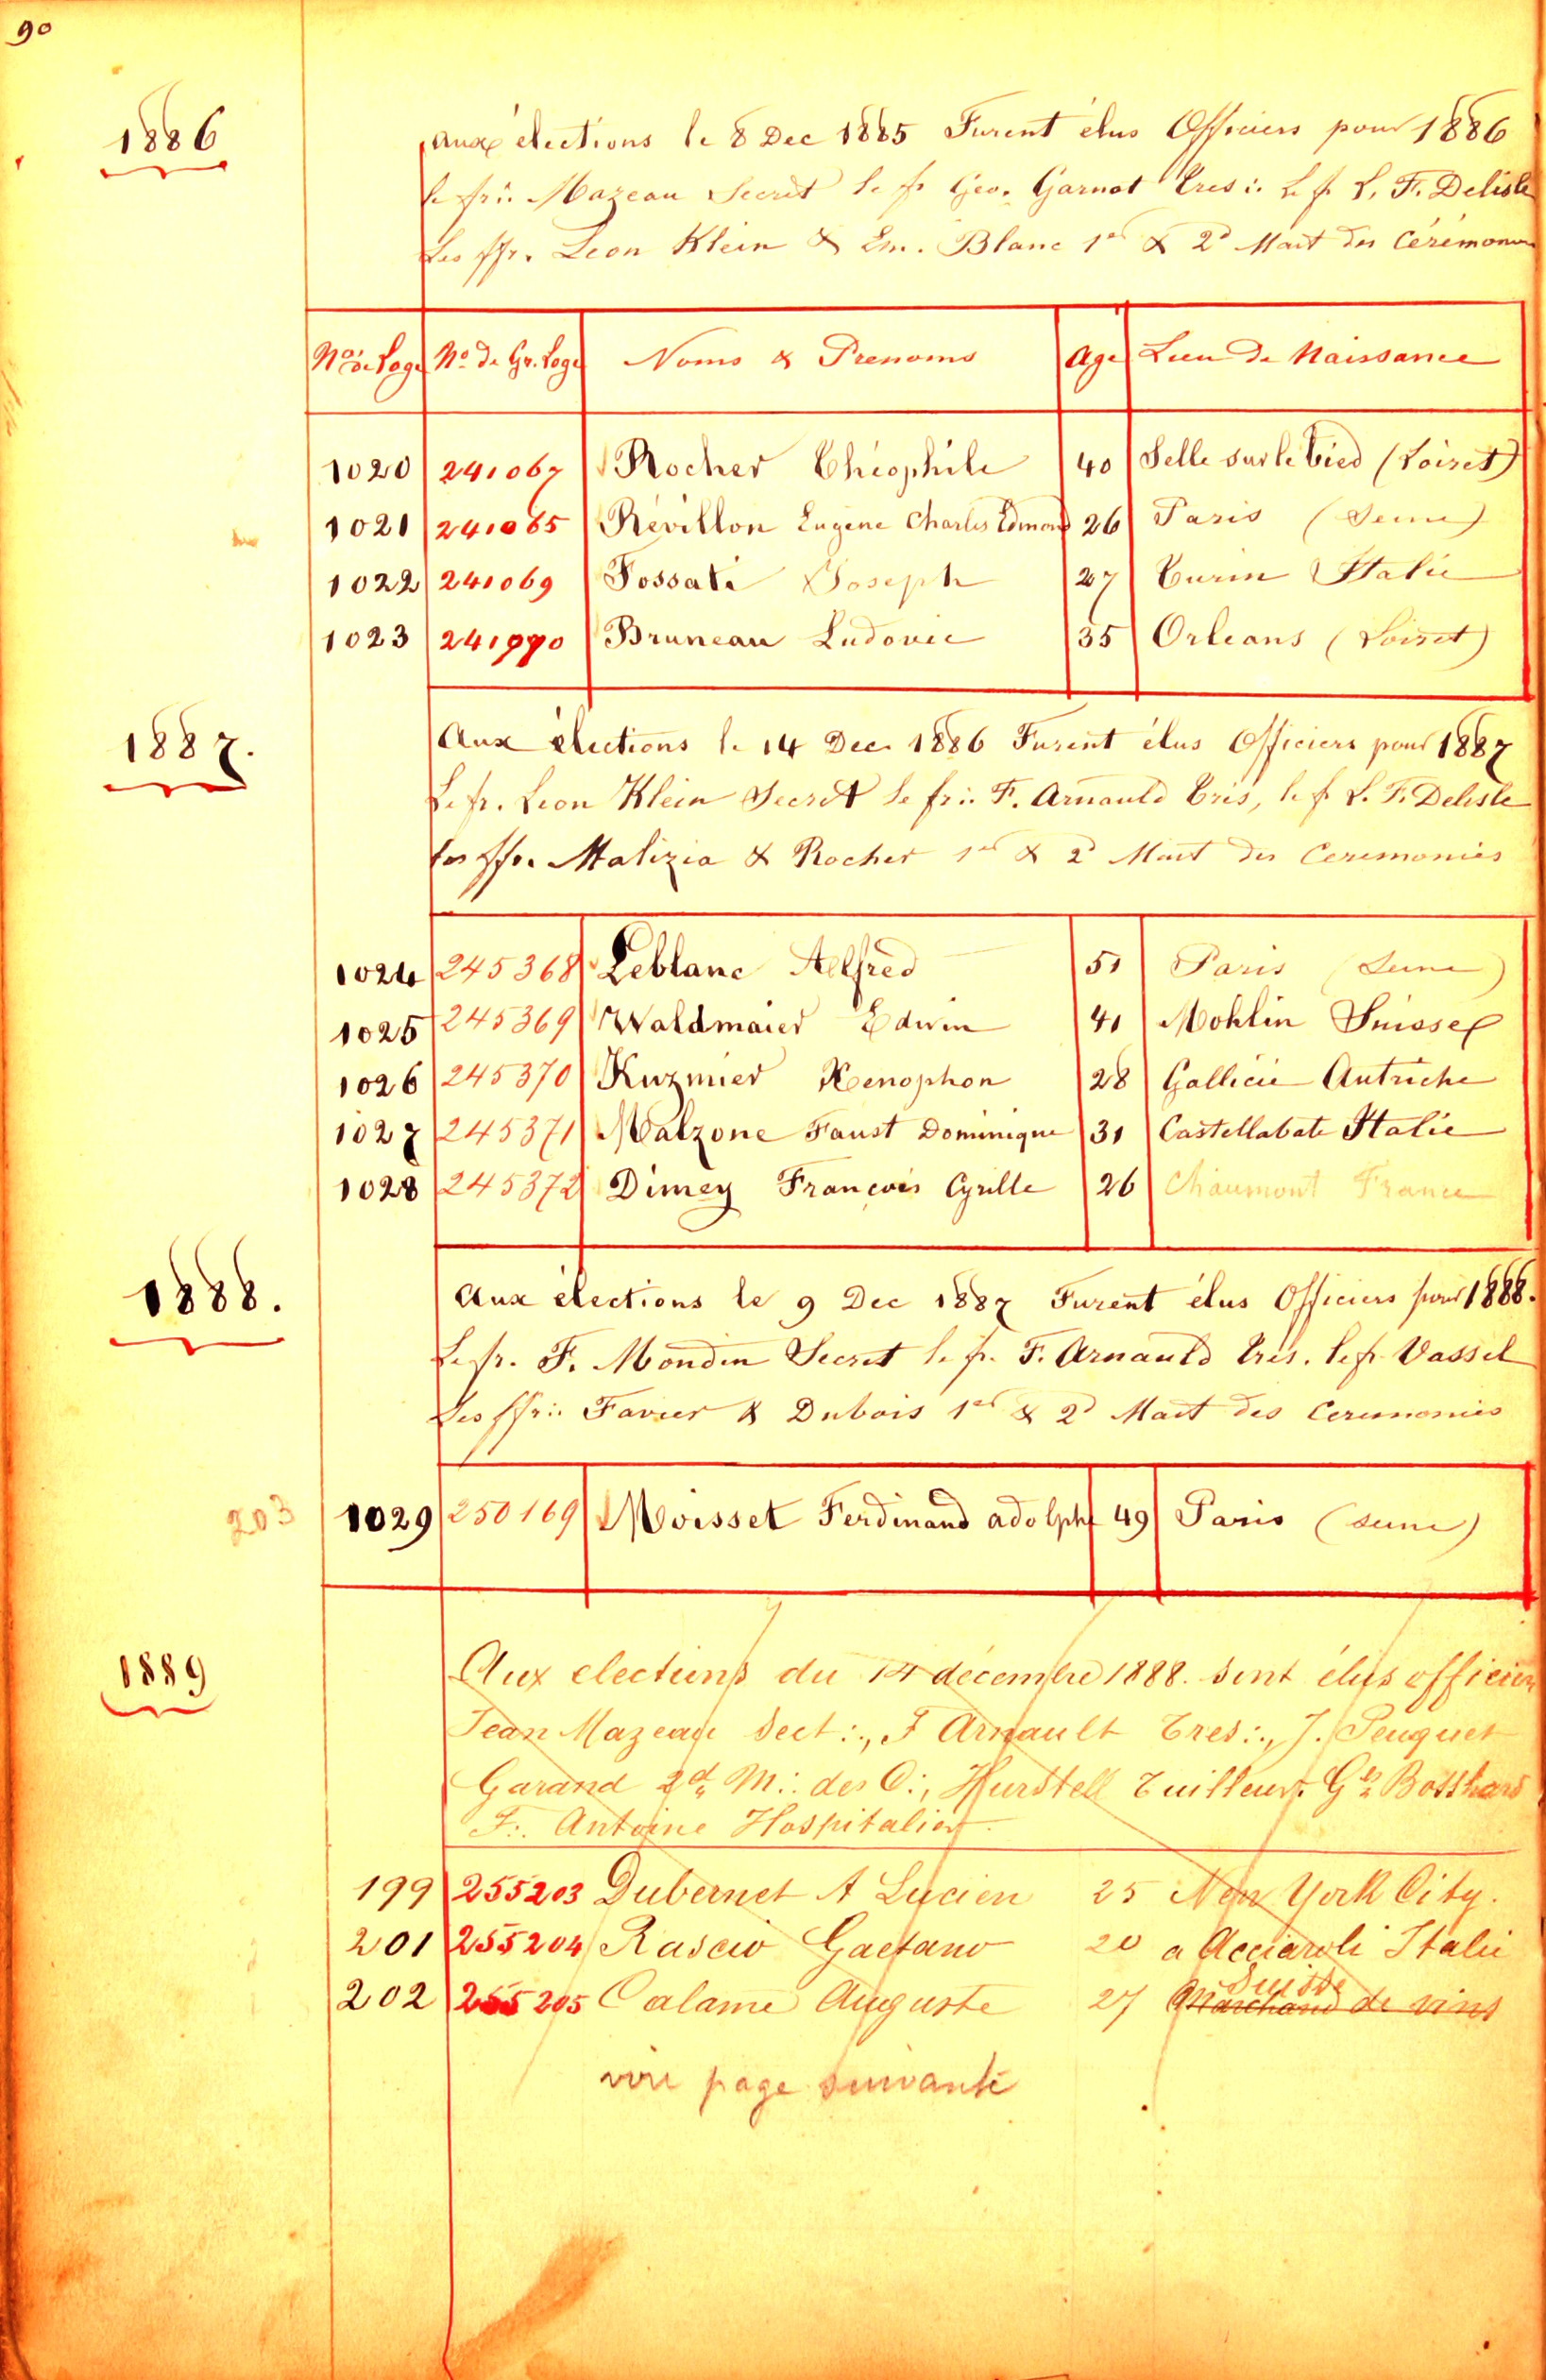 90
1886
Aux élections le 8 Dec 1885 Furent élus Officiers pour 1886
le fr∴ Mazeau Secret le fr Geo. Garnot Tres∴ Le fr L. F. Delisle
Les ffr. Leon Klein & Em. Blanc 1er & 2d Mait des Cérémonies
No de Loge No de Gr. Loge Noms & Prenoms Age Lieu de Naissance
1020 241067 Rocher Théophile 40 Selle sur le Bied (Loiret)
1021 241065 Révillon Eugene Charles Edmond 26 Paris (Seine)
1022 241069 Fossati Joseph 27 Turin Italie
1023 241070 Bruneau Ludovic 35 Orleans (Loiret)
1887.
Aux élections le 14 Dec 1886 Furent élus Officiers pour 1887
Le fr. Leon Klein Secret le fr∴ F. Arnauld Très, le fr L. F. Delisle
les ffr. Malizia & Rocher 1er & 2d Mait des Ceremonies
1024 245368 Leblanc Alfred 51 Paris (Seine)
1025 245369 Waldmaier Edwin 41 Mohlin Suisse
1026 245370 Kuzmier Xenophon 28 Gallicie Autriche
1027 245371 Malzone Faust Dominique 31 Castellabate Italie
1028 245372 Dimey François Cyrille 26 Chaumont France
1888.
Aux élections le 9 Dec 1887 Furent élus Officiers pour 1888.
Le fr. F. Mondin Secret le fr. F. Arnauld Très. le fr Vassel
Les ffr∴ Favier & Dubois 1er & 2d Mait des Ceremonies
203 1029 250169 Moisset Ferdinand adolphe 49 Paris (Seine)
1889
Aux elections du 14 décembre 1888. sont élus officiers
Jean Mazeau Sect∴, F Arnault Tres∴, J. Peuquet
Garand 2d M∴ des C∴, Hurstell Tuilleur, Gve Bosshard
F∴ Antoine Hospitalier.
199 255203 Dubernet A Lucien 25 New York City.
201 255204 Rascio Gaetano 20 a Acciaroli Italie
Suisse
202 255205 Calame Auguste 27 Marchand de vins
voir page suivante